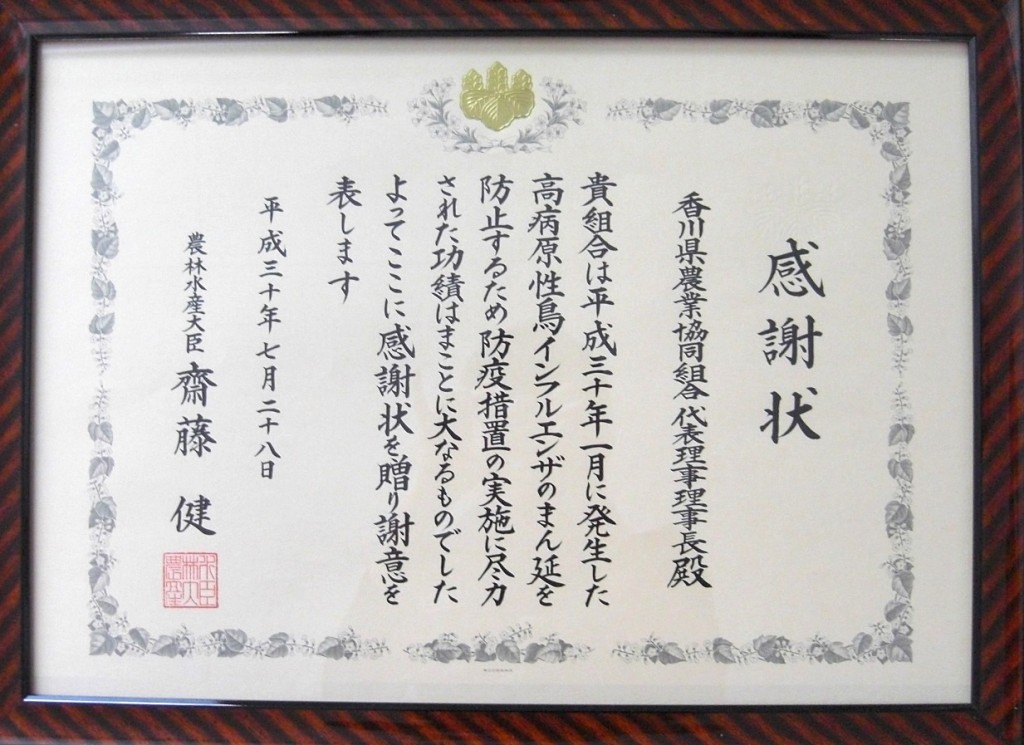 感謝状
香川県農業協同組合 代表理事理事長殿
貴組合は平成三十年一月に発生した
高病原性鳥インフルエンザのまん延を
防止するため防疫措置の実施に尽力
された功績はまことに大なるものでした
よってここに感謝状を贈り謝意を
表します
平成三十年七月二十八日
農林水産大臣 齋藤 健